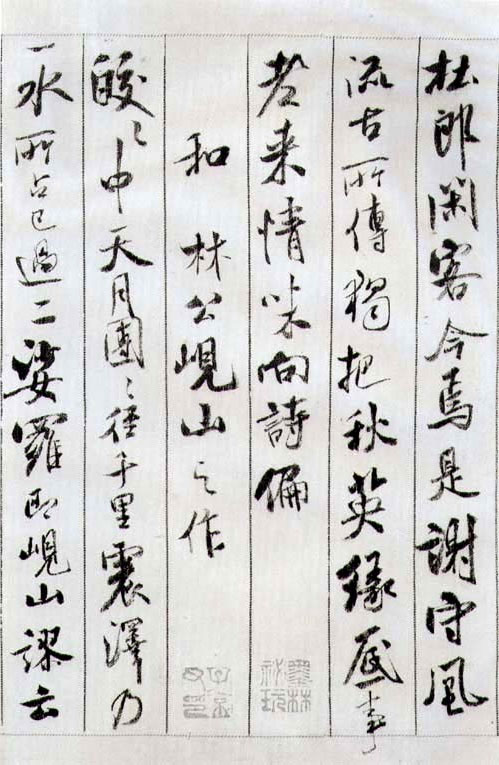 杜郎閑客今焉是謝守風
流古所傳獨把秋英緣底事
老来情味向詩偏
和林公峴山之作
皎〻中天月團〻徑千里震澤乃
一水所占已過二娑羅即峴山謬云
墨林祕玩
子京父印